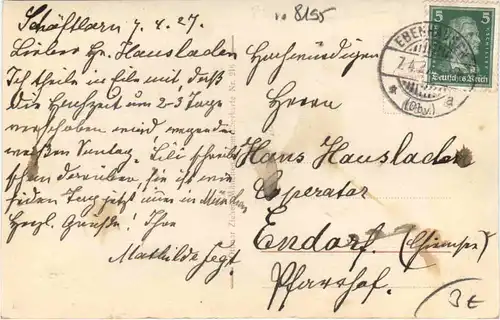 8155
Schäftlarn 7.4.27.
Lieber Hr. Hausladen
Ich theile in Eile mit, daß
die Hochzeit um 2-3 Tage
verschoben wird wegen
weißen Sontag. Lili schreibt
schon darüber, sie ist wie
jeden Tag jetzt in München
Herzl. Grüße! Ihre
Mathilde
Hochwürdigen
Herrn
Hans Hausladen
Cooperator
Endorf. (Chiemsee)
Pfarrhof.
5 5
Deutsches Reich
EBENHAUSEN
7.4.2
(Oby.)
a
3t